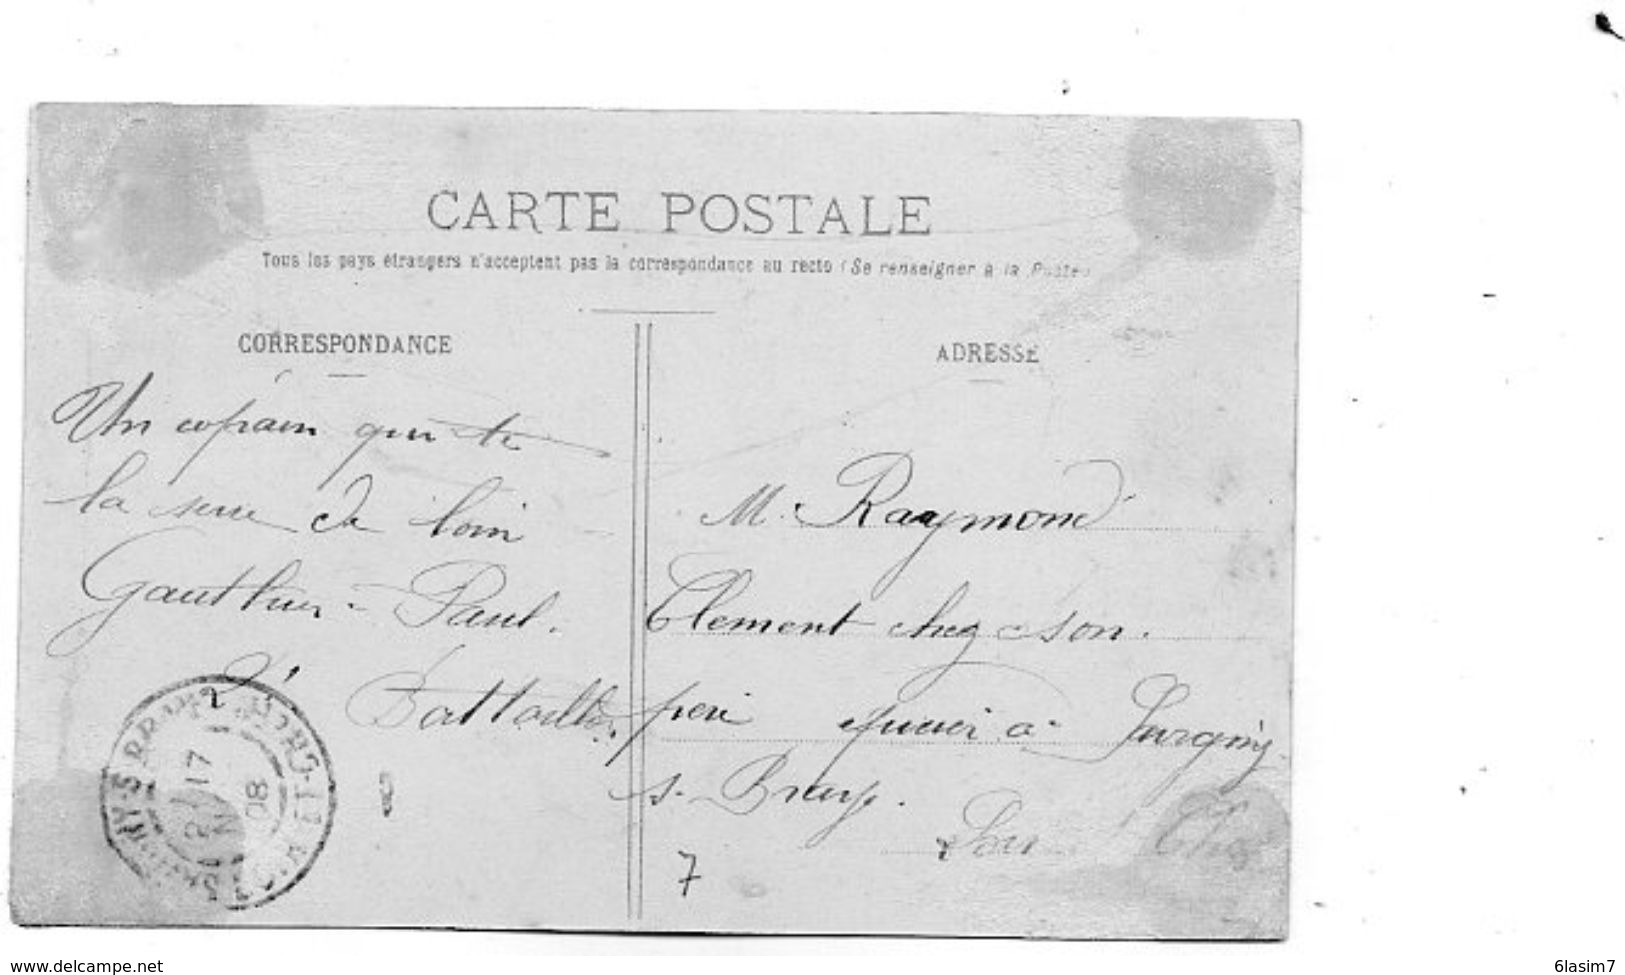 CARTE POSTALE
Tous les pays étrangers n'acceptent pas la correspondance au recto (Se renseigner à la Poste)
CORRESPONDANCE
ADRESSE
Un copain qui te
la serre de loin
Gauthier Paul.
M. Raymond
Clement chez son
père à Savigny
s. Braye.
Loir Cher
7
17
08
www.delcampe.net
6lasim7